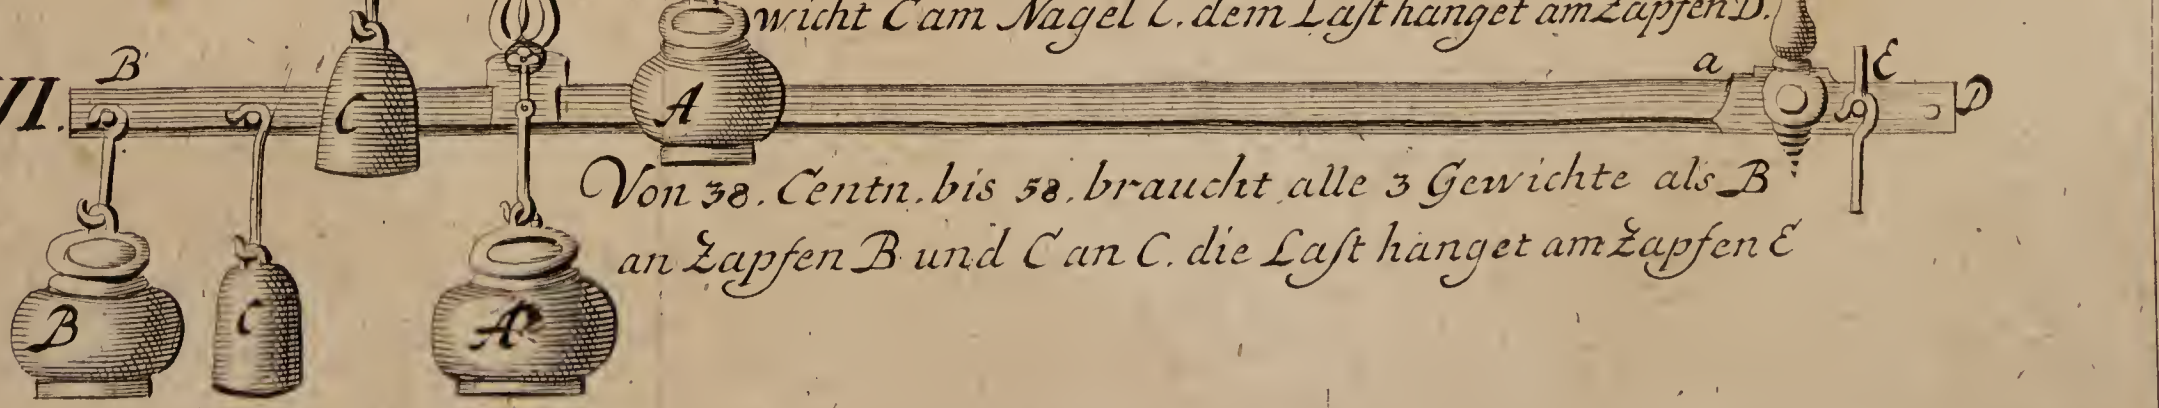 wicht C am Nagel C. dem Laſt hanget am Zapfen D.
B
a
E
VI.
C
A
D
Von 38. Centn. bis 58. braucht alle 3 Gewichte als B
an Zapfen B und C an C. die Laſt hanget am Zapfen E
B
C
A